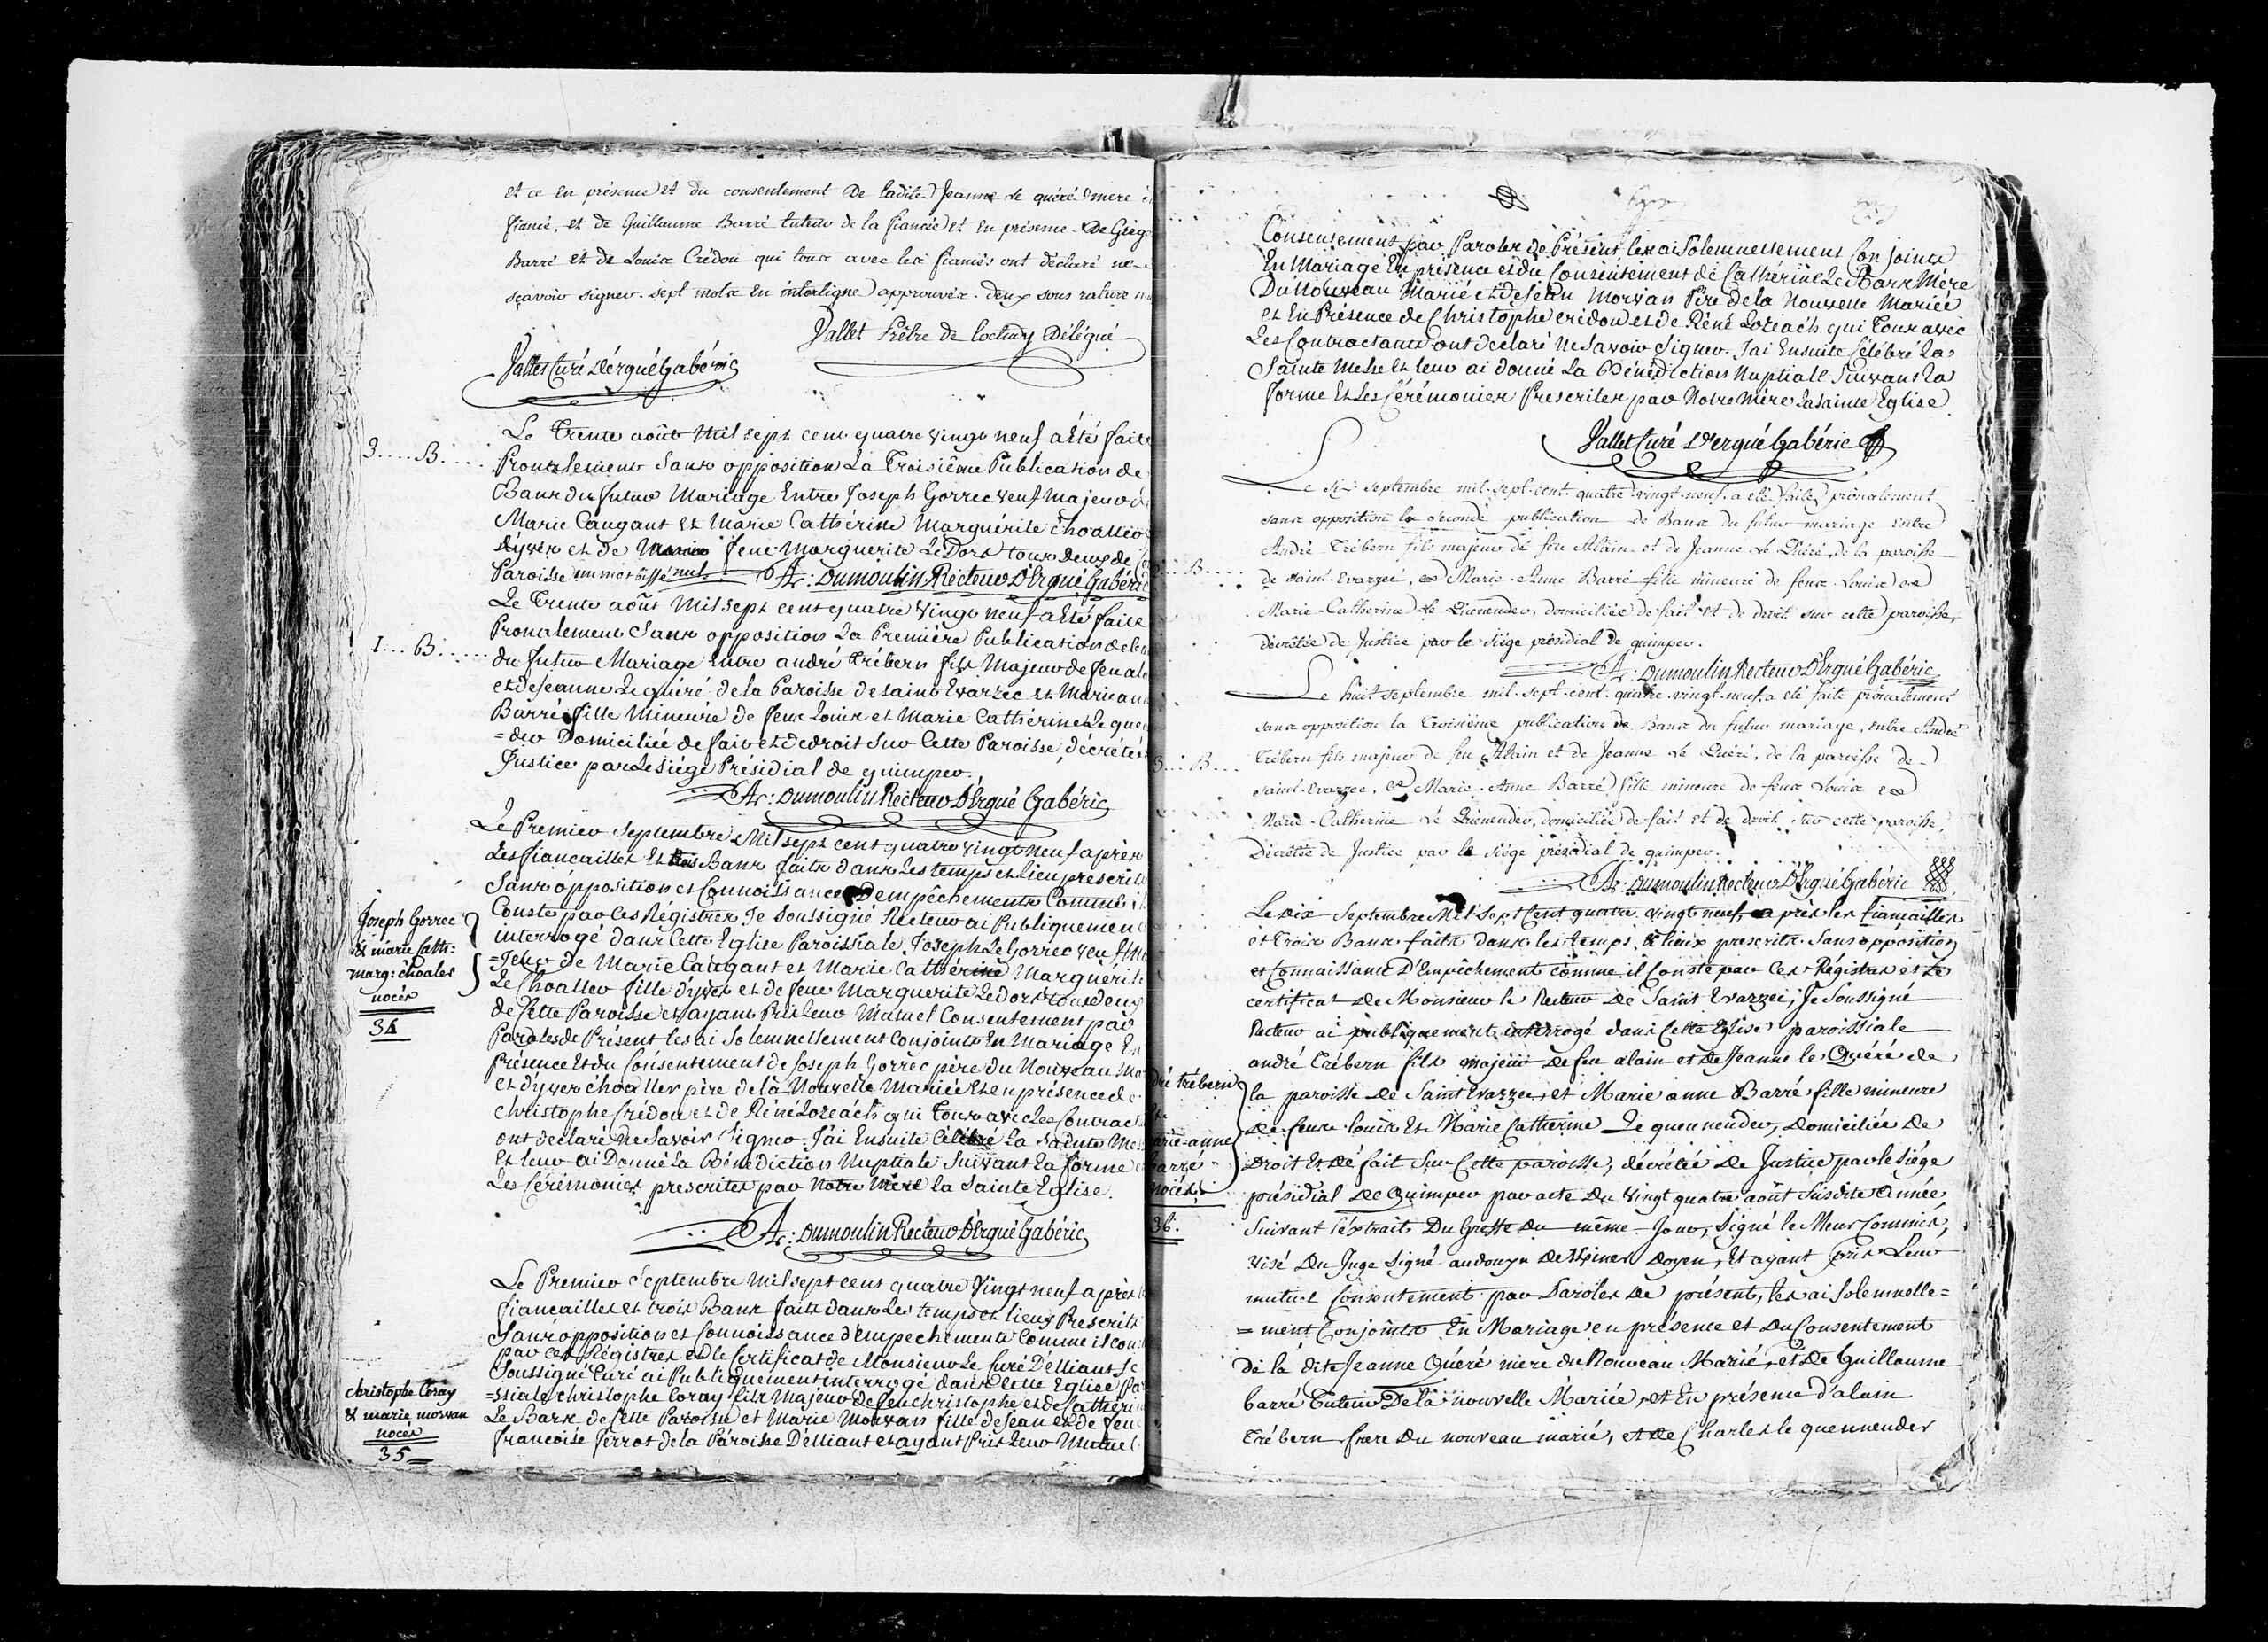 et ce en présence et du consentement de ladite Jeanne Le quéré mere
fiancé, et de Guillaume Barré tuteur de la fiancée et en présence de Grég
Barré et de Louise Crédou qui tous avec les fiancés ont déclaré ne
sçavoir signer. sept mots en interligne approuvés. deux sous rature
Jallet Prêtre de loctudy Délégué
Jallet Curé d'érgué Gabéric
3.... B....
Le Trente août mil sept cent quatre vingt neuf a été faite
Pronalement Sans opposition La Troisiême Publication de
Bans du futur Mariage Entre Joseph Gorrec veuf Majeur d
Marie Caugant et Marie Cathérine Marguérite choaller
dyves et de feue Marguerite Le Dors tous deux de
Paroisse un mot biffé nul. A: Dumoulin Recteur D'Ergué Gabéric
1.... B....
Le Trente août Mil sept cent quatre vingt neuf a été faite
Pronalement Sans opposition La Premiére Publication de
du futur Mariage Entre andré Trébern fils Majeur de feu al
et de Jeanne Le quéré de la Paroisse de saint Evarzec et Marie an
Barré fille Mineure de feux Louis et Marie Cathérine Le quen
=der Domiciliée de fait et de droit Sur Cette Paroisse, décrétée
Justice par Le Siége Présidial de quimper.
A: Dumoulin Recteur D'Ergué Gabéric
Le Premier Septembre Mil sept cent quatre vingt neuf après
Les fiancailles et trois Bans faits dans Les temps et lieu prescrits
Sans opposition et Connoissance d'empêchements Comme il
Conste par ces Régistres Je soussigné Recteur ai Publiquement
interrogé dans Cette Eglise Paroissiale Joseph Le Gorrec veuf Ma
=jeur de Marie Caugant et Marie Cathérine Marguérite
Le Choaller fille dyves et de feue Marguerite Le Dors tous deux
de Cette Paroisse et ayant Pris Leur Mutuel Consentement par
Paroles de Présent Les ai Solemnellement Conjoints En Mariage En
présence Et du Consentement de Joseph Gorrec père du Nouveau Ma
et dyves choaller père de la Nouvelle Mariée et en présence de
Christophe Crédou et de Réné Lozeach qui Tous avec Les Contract
ont declaré Ne Savoir Signer. J'ai Ensuite Célébré La Sainte Me
Et leur ai Donné La Bénédiction Nuptiale Suivant La forme
Les Cérémonies prescrites par Notre Mere la Sainte Eglise.
Joseph Gorrec
& marie Cath:
marg: choaler
noces
34
A: Dumoulin Recteur D'Ergué Gabéric
Le Premier Septembre Mil sept cent quatre Vingt neuf après
fiancailles et trois Bans faits dans Les temps et lieux Prescrits
Sans opposition et Connoissance d'empechements Comme il cons
par ces Régistres et le Certificat de Monsieur Le Curé D'elliant Je
Soussigné Curé ai Publiquement interrogé dans Cette Eglise Pa
=ssiale Christophe Coray fils Majeur de feu christophe et de Catheri
Le Bars de Cette Paroisse et Marie Morvan fille de Jean et de feue
francoise ferrot de la Paroisse D'elliant et ayant Pris Leur Mutuel
christophe Coray
& marie morvan
noces
35
Consentement par Paroles de Présent les ai Solemnellement Conjoints
En Mariage En présence et du Consentement de Cathérine Le Bars Mère
Du Nouveau Marié et de Jean Morvan Père de la Nouvelle Mariée
et En Présence de Christophe crédou et de Réné Lozeach qui Tous avec
Les Contractants ont declaré Ne Savoir Signer. J'ai Ensuite Célébré La
Sainte Messe et leur ai donné La Bénédiction Nuptiale Suivant La
forme Et Les Cérémonies Prescrites par Notre Mère La Sainte Eglise
Jallet Curé D'ergué Gabéric
Le six septembre mil-sept-cent-quatre-vingt-neuf a été faite prônalement
sans opposition la seconde publication de Bans du futur mariage entre
André Trébern fils majeur de feu Alain et de Jeanne Le Quéré, de la paroisse
B....
de saint-Evarzec, et Marie-Anne Barré fille mineure de feux Louis et
Marie-Catherine Le Quenender, domiciliée de fait et de droit sur cette paroisse,
décrétée de Justice par le siége présidial de quimper.
A: Dumoulin Recteur D'Ergué Gabéric
Le huit septembre mil-sept-cent-quatre-vingt-neuf a été faite prônalement
sans opposition la Troisiéme publication de Bans du futur mariage, entre André
3... B...
Trébern fils majeur de feu Alain et de Jeanne Le Quéré, de la paroisse de
saint-Evarzec, et Marie-Anne Barré fille mineure de feux Louis et
Marie-Catherine Le Quenender, domiciliée de fait et de droit sur cette paroisse,
Décrétée de Justice par le siége présidial de quimper.
A: Dumoulin Recteur D'Ergué Gabéric
Le dix Septembre Mil Sept Cent quatre vingt neuf après les fiancailles
et Trois Bans faits dans les temps, & lieux prescrits Sans opposition
et Connaissance D'Empêchement comme il Conste par Ces Régistres et Le
certificat de Monsieur le Recteur De Saint Evarzec, Je Soussigné
Recteur ai publiquement interrogé dans Cette Eglise paroissiale
andré Trébern fils majeur de feu alain et de Jeanne le Quéré de
la paroisse de Saint Evarzec, et Marie anne Barré fille mineure
de feux louis Et Marie Catherine Le quennender, domiciliée De
Droit Et De fait Sur Cette paroisse, décrétée De Justice par le Siége
présidial De Quimper par acte Du vingt quatre août Susdite Année,
Suivant l'extrait Du Greffe du même Jour, Signé le Meur Commis,
visé Du Juge Signé audouyn Doyen, Et ayant pris Leur
mutuel Consentement par Paroles De présent, les ai Solemnelle=
=ment Conjoints En Mariage en présence et Du Consentement
de la dite Jeanne Quéré mere du Nouveau Marié, et De Guillaume
barré Tuteur De la nouvelle Mariée, et En présence d'alain
Trébern frere Du nouveau marié, et de Charles le quennender
dré trébern
Et
arie-anne
barré
noces
36.